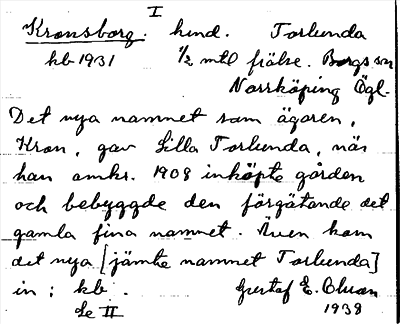 I
Kronsborg. hmd. Torlunda
kb 1931 ½ mtl frälse. Borgs sn
Norrköping Ögl.
Det nya namnet som ägaren,
Kron, gav Lilla Torlunda, när
han omkr. 1908 inköpte gården
och bebyggde den förgätande det
gamla fina namnet. Även kom
det nya [jämte namnet Torlunda]
in i kb.
Se II
Gustaf E.
1938